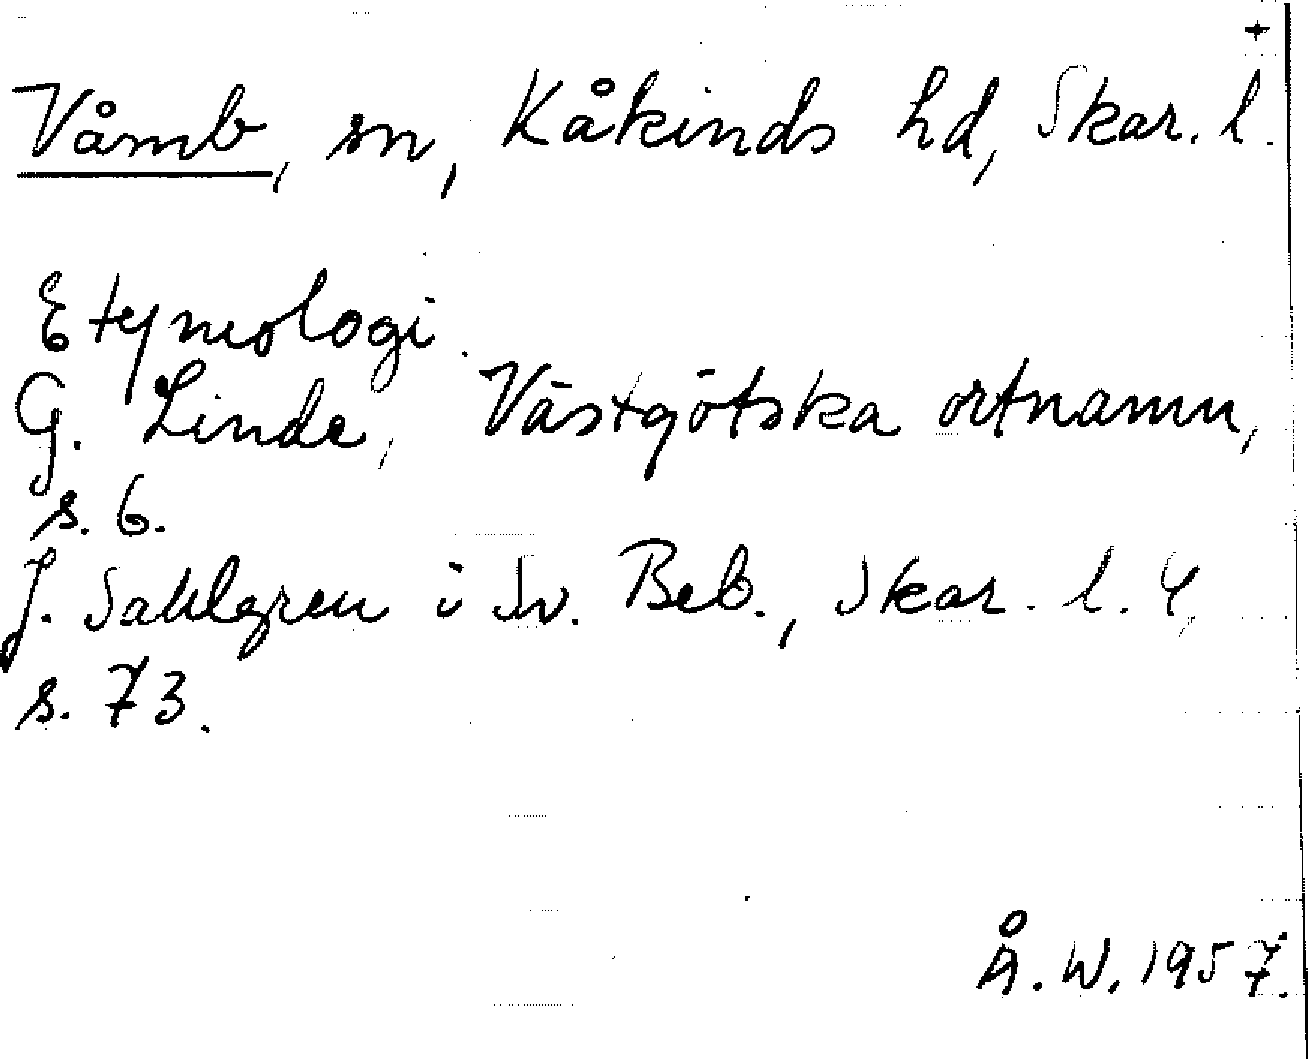 +
Våmb, sn, Kåkinds hd, Skar. l.
Etymologi.
G. Linde, Västgötska ortnamn,
s. 6.
J. Sahlgren i Sv. Beb., Skar. l. 4,
s. 73.
Å. W. 1957.